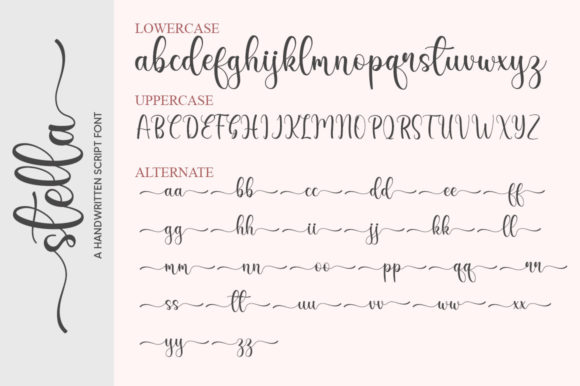 stella
A HANDWRITTEN SCRIPT FONT
LOWERCASE
abcdefghijklmnopqrstuvwxyz
UPPERCASE
ABCDEFGHIJKLMNOPQRSTUVWXYZ
ALTERNATE
aa bb cc dd ee ff
gg hh ii jj kk ll
mm nn oo pp qq rr
ss tt uu vv ww xx
yy zz